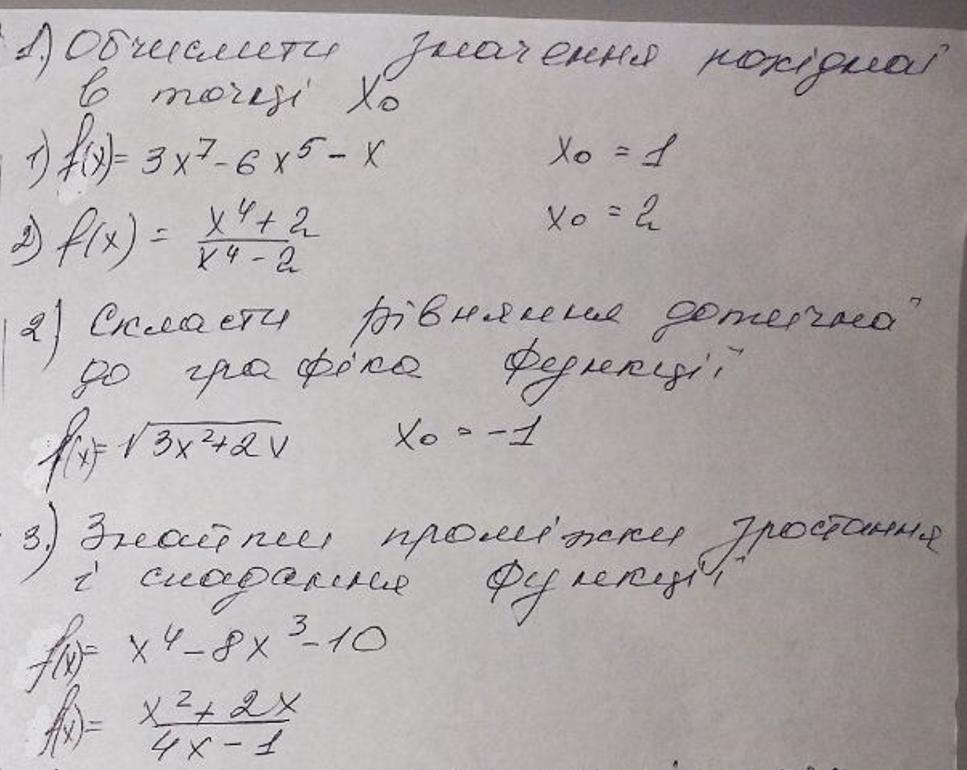 1.) Обчислити значення похідної
в точці x₀
1) f(x) = 3x⁷ - 6x⁵ - x x₀ = 1
2) f(x) = (x⁴ + 2)/(x⁴ - 2) x₀ = 2
2) Скласти рівняння дотичної
до графіка функції
f(x) = √(3x² + 2x) x₀ = -1
3.) Знайти проміжки зростання
і спадання функції
f(x) = x⁴ - 8x³ - 10
f(x) = (x² + 2x)/(4x - 1)